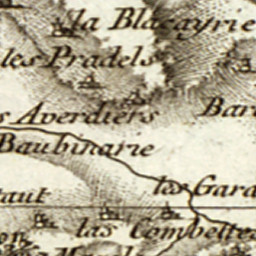 la Blacayrie
les Pradels
s Averdiers
Bar
Baubinarie
las Gara
aut
las Combettes